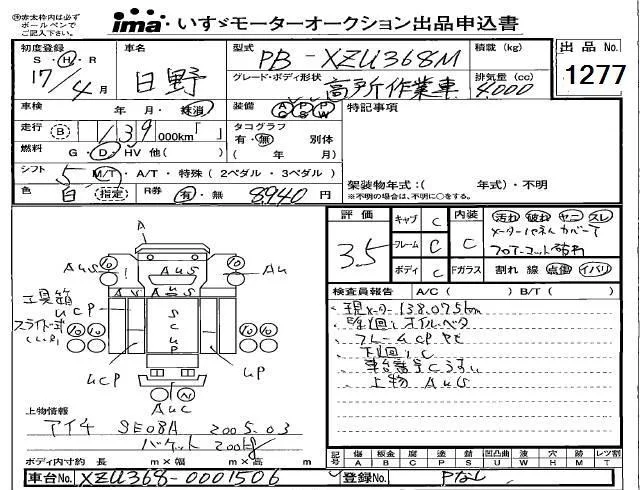 ㊟赤太枠内は必ず
ボールペンで
ご記入下さい。
ima いすゞモーターオークション出品申込書
初度登録
S・H・R
17/4月
車名
日野
型式
PB-XZU368M
積載(kg)
出品No.
1277
グレード・ボディ形状
高所作業車
排気量(cc)
4000
車検
年・月・抹消
装備
AC PS PW
特記事項
走行 B 139 000km「 」
タコグラフ
有・無 別体
( 年 月)
燃料
G・D・HV 他( )
シフト
5 M/T・A/T・特殊(2ペダル・3ペダル)
架装物年式:( 年式)・不明
※不明の場合は、不明に○をする。
色
白 (指定)
R券
有・無 8940円
評価
3.5
キャブ C
フレーム C
ボディ C
内装 C
Fガラス
汚れ 破れ ヤニ スレ
メーターパネルカバーT
フロアーコート破れ
割れ 線 点傷 イバリ
検査員報告 A/C( ) B/T( )
・現メーター138.075km
・オイルベタ
・フレームUCP
・下回りC
・車台番号Cうすい
・上物 AUS
A
AUS
AUS
AU
工具箱
UCP
スライド式
SCUP
UCP
UP
AUC
10
上物情報
アイチ SE08A 2005.03
バケット 200kg
ボディ内寸約 長 m×幅 m×高 m
記号
傷 板金 腐 塗 錆 凹凸曲 波 穴 痕 レツ割
A B C P S U W H M T
車台No. XZU368-0001506
登録No. Pなし